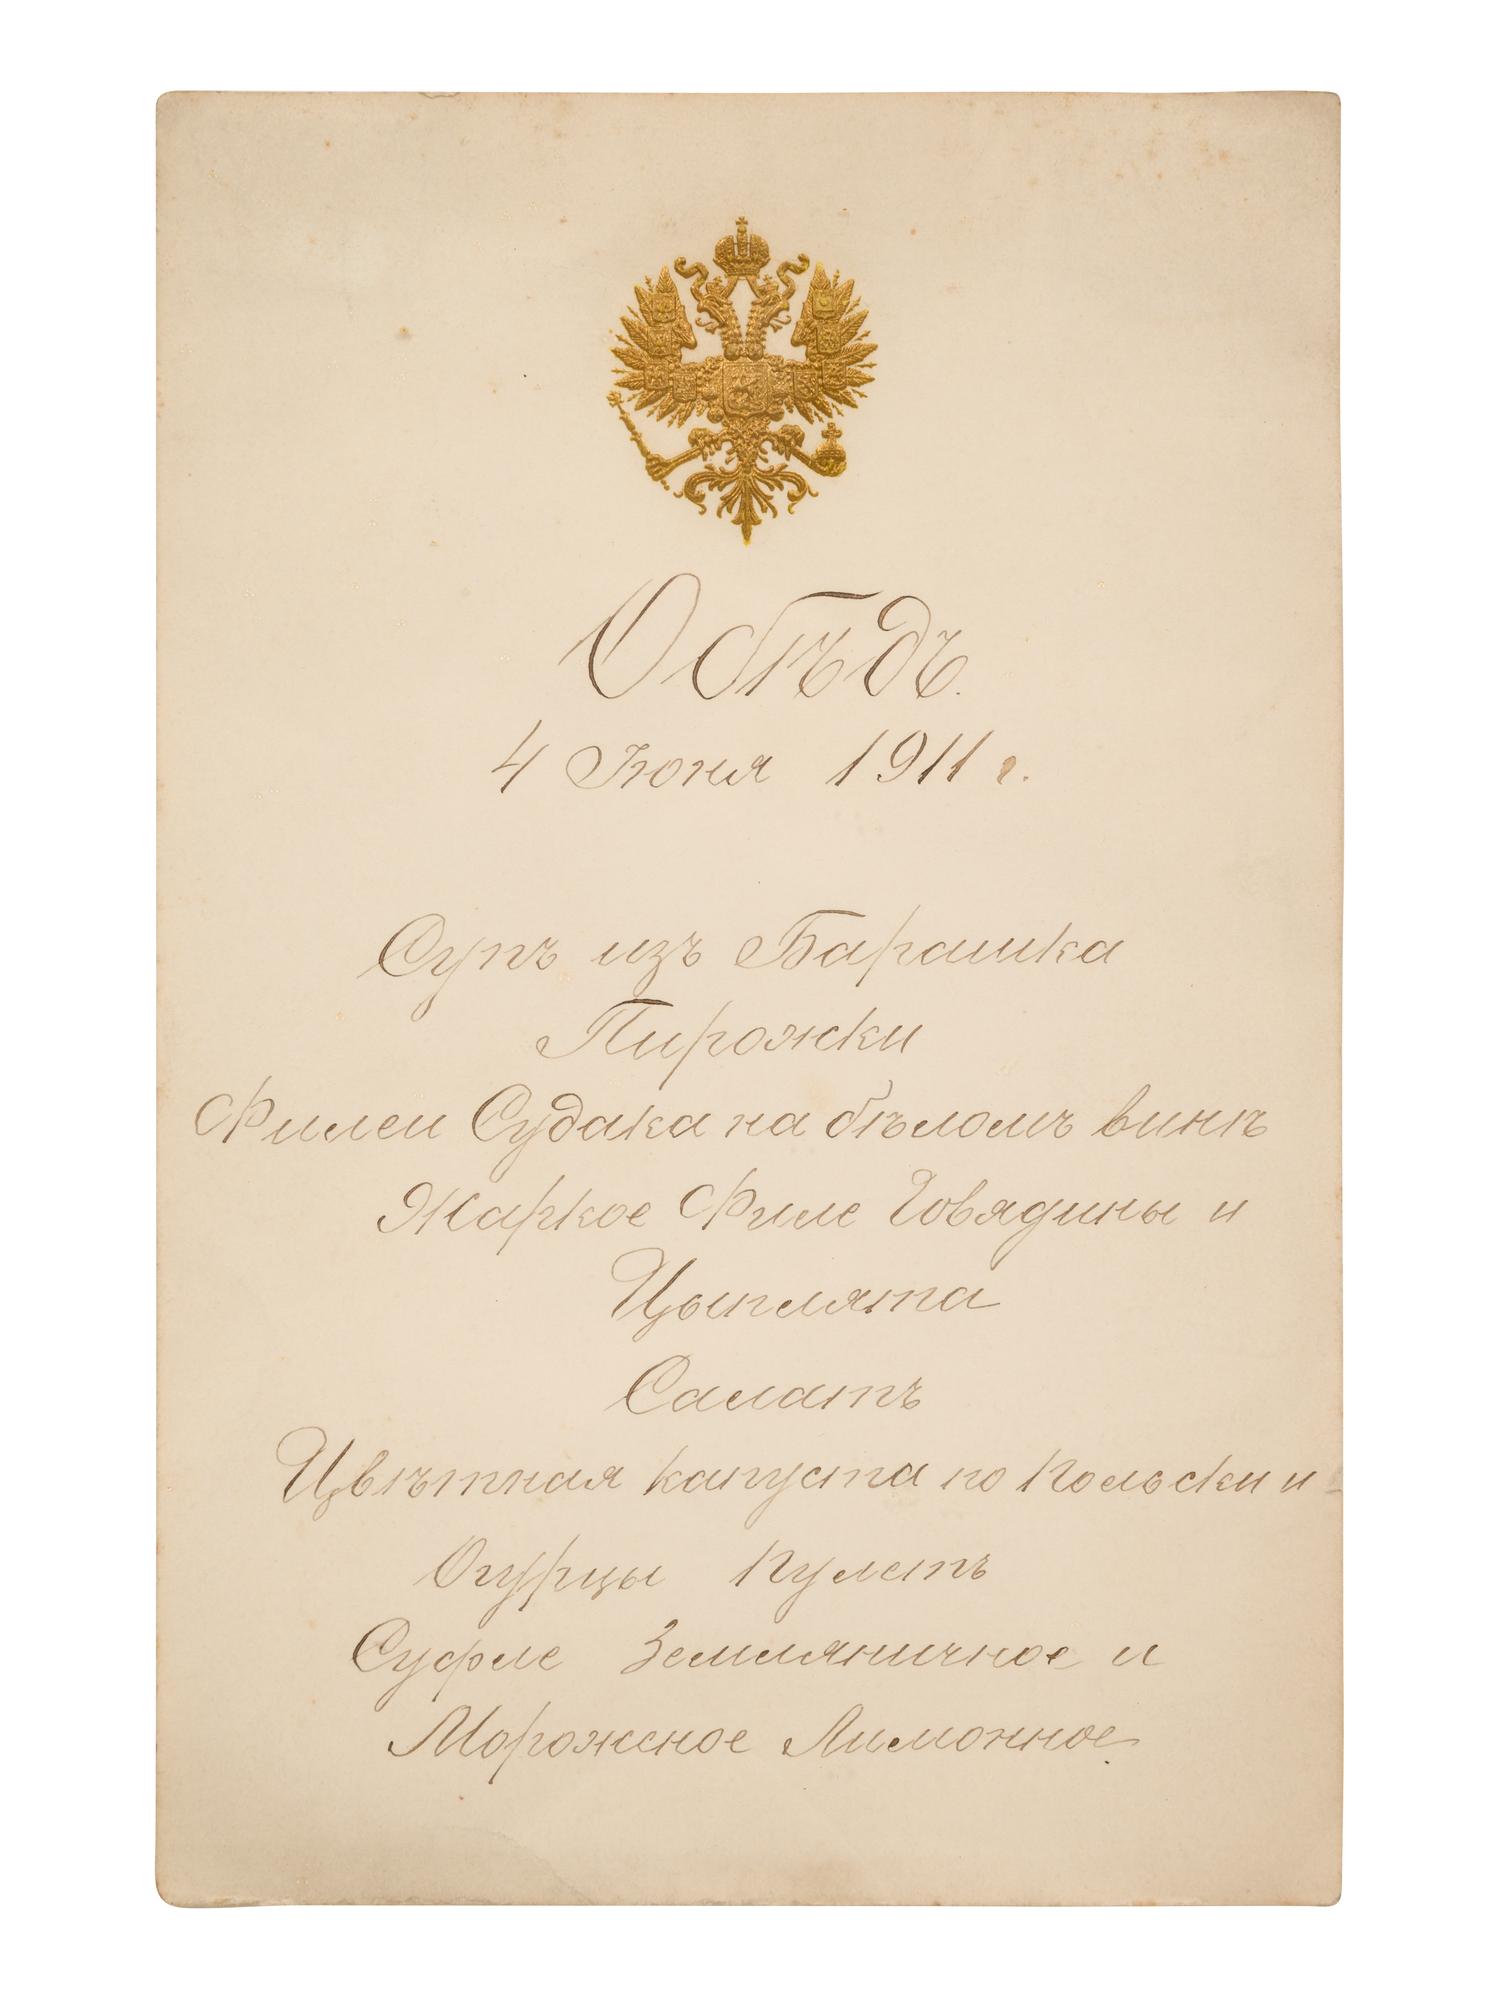 Обѣдъ.
4 Июня 1911 г.
Супъ изъ Барашка
Пирожки
Филеи Судака на бѣломъ винѣ
Жаркое Филе Говядины и
Цыплята
Салатъ
Цвѣтная капуста по Польски и
Огурцы Пулетъ
Суфле Земляничное и
Мороженое Лимонное